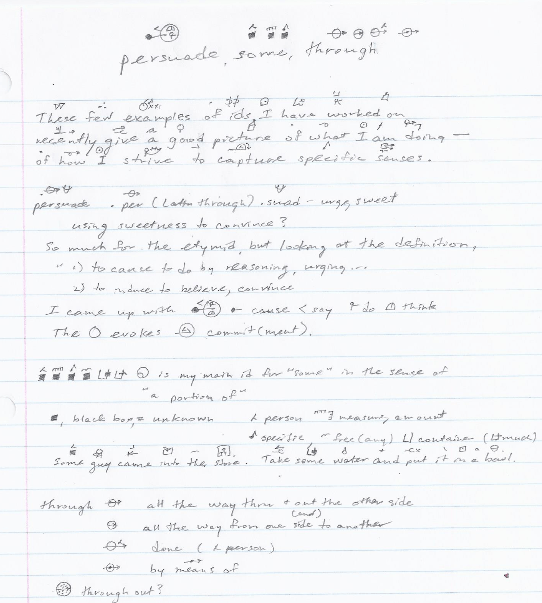 persuade, some, through
These few examples of ids I have worked on
recently give a good picture of what I am doing —
of how I strive to capture specific senses.
persuade . per (Latin through) . suad - urge, sweet
using sweetness to convince?
So much for the etymid, but looking at the definition,
" 1) to cause to do by reasoning, urging...
2) to induce to believe, convince
I came up with cause < say do think
The O evokes commit(ment).
is my main id for "some" in the sense of
"a portion of"
, black box, = unknown person measure, amount
specific, ~ free (any) container (much)
Some guy came into the store. Take some water and put it in a bowl.
through all the way thru + out the other side
(end)
all the way from one side to another
done ( person)
by means of
through out?